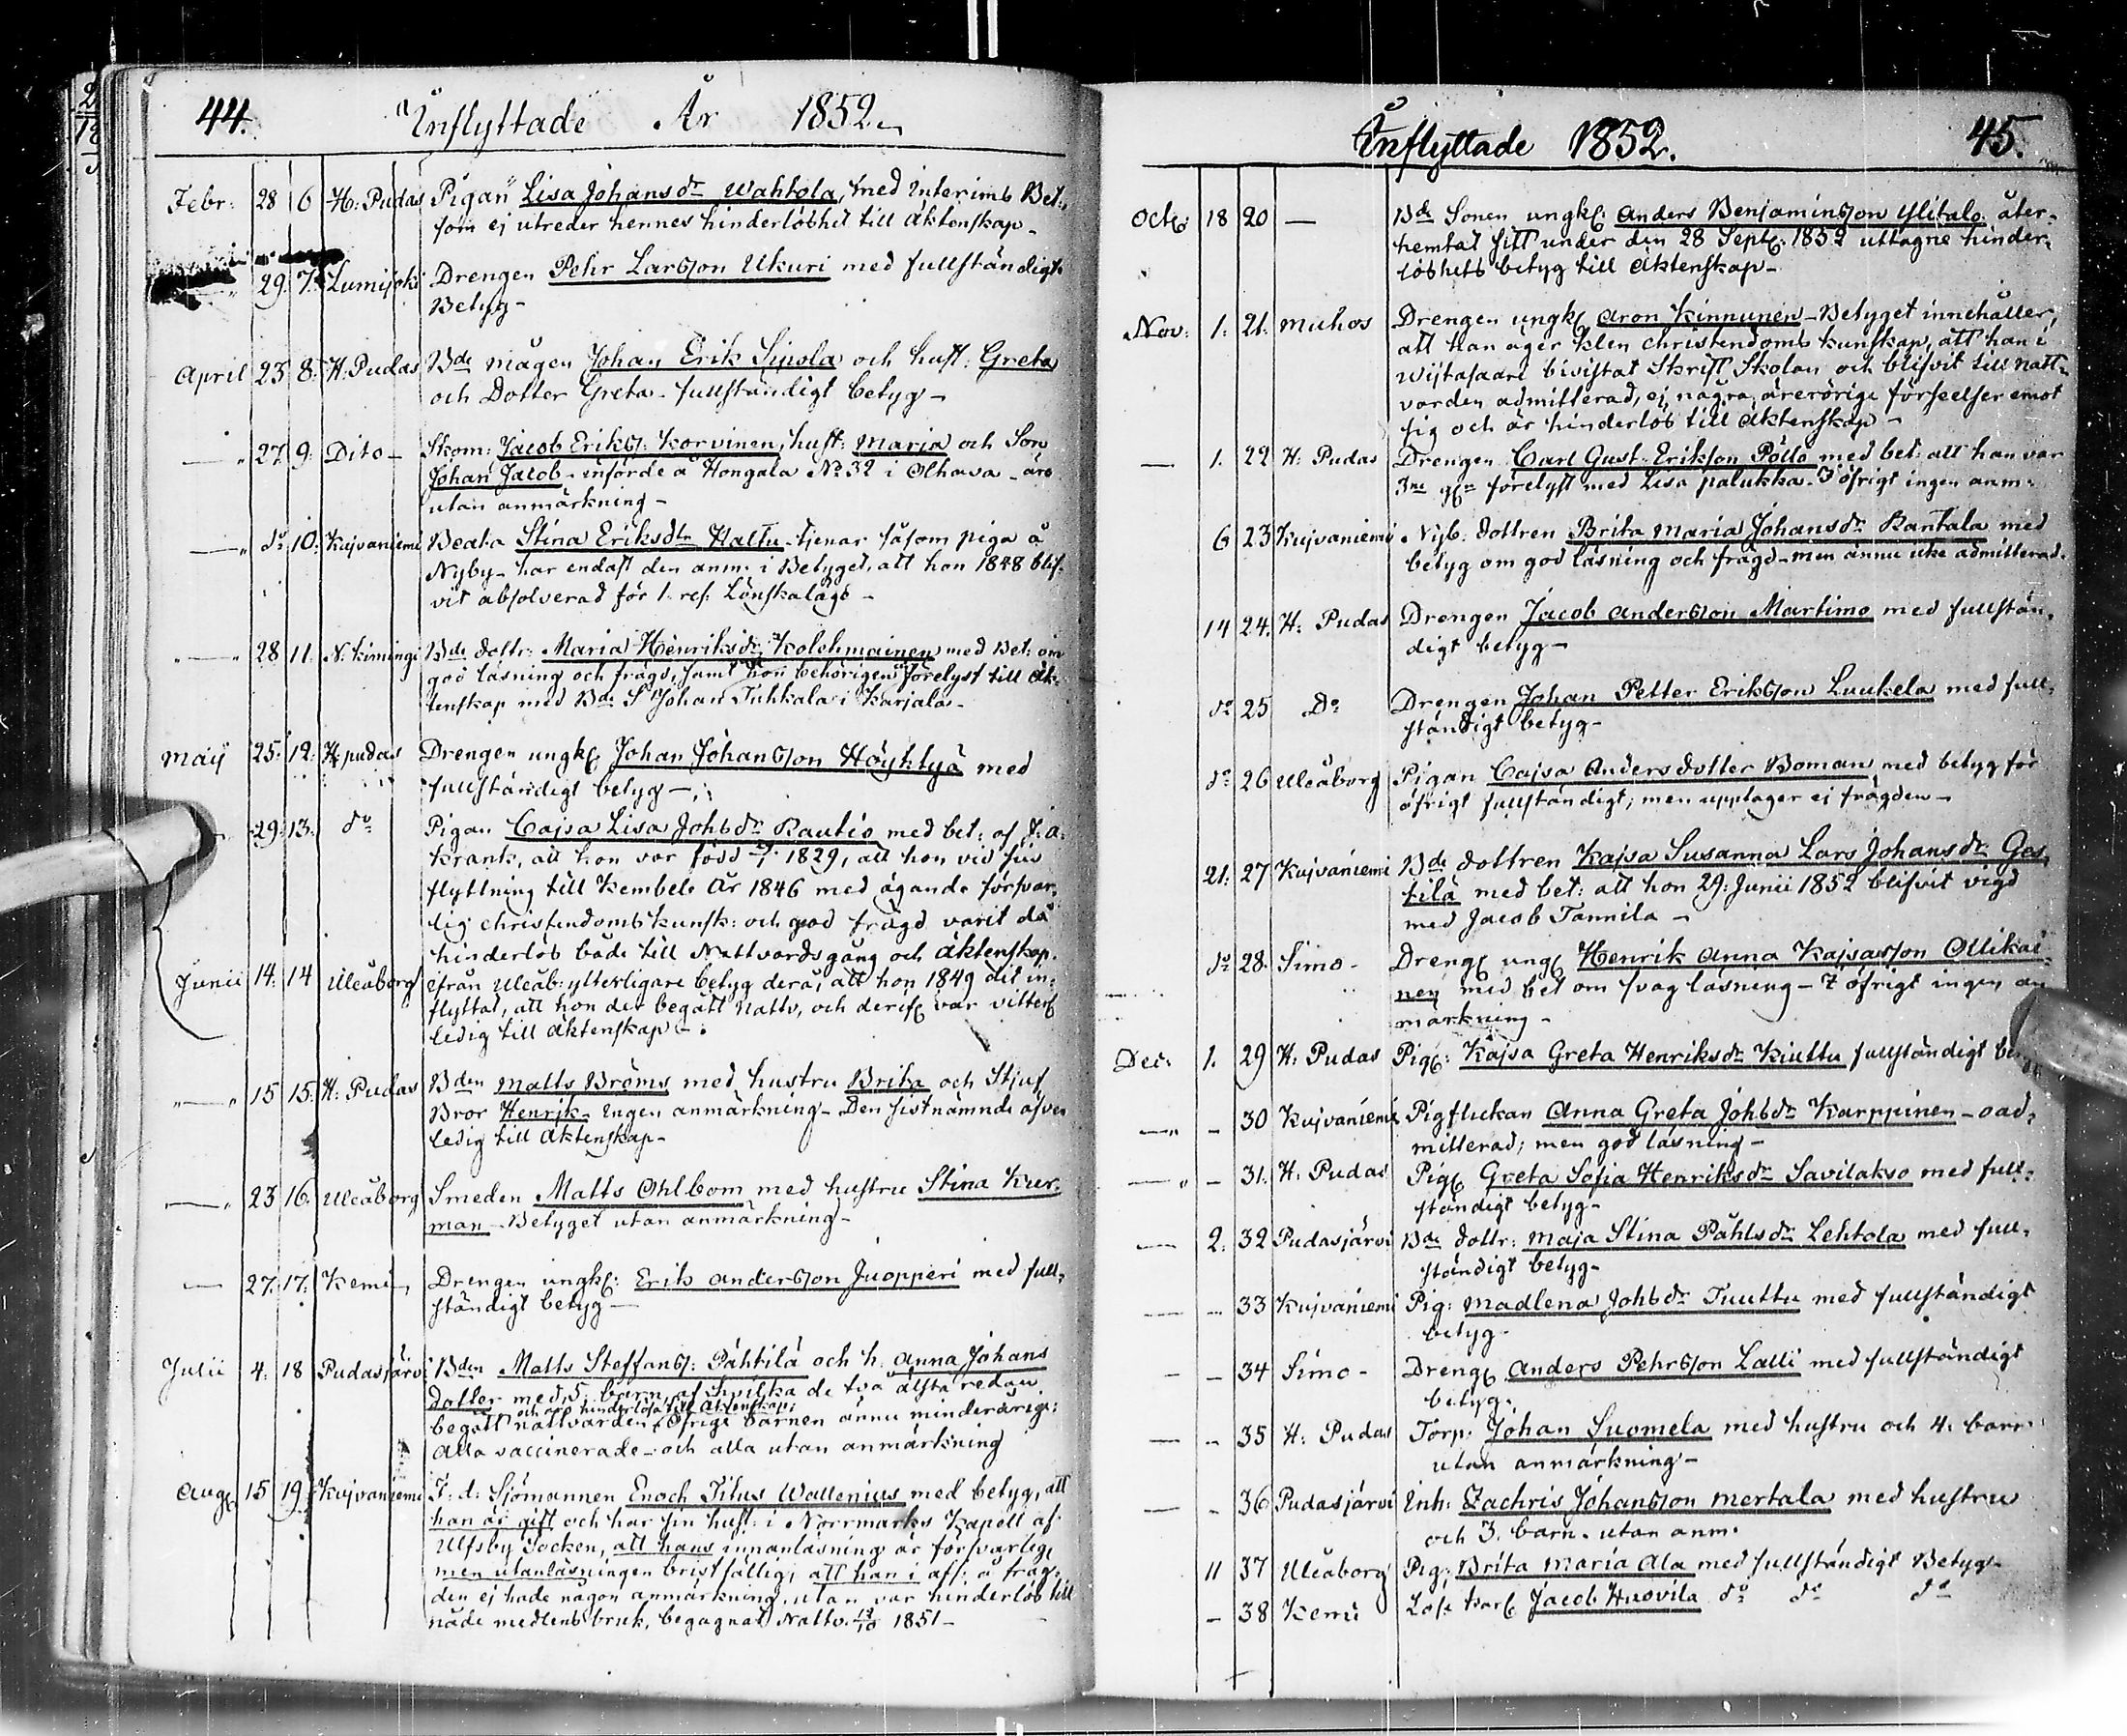 44. Inflyttade År 1852.
Febr: 28 6 H: Pudas Pigan Lisa Johansdr Wahtola, med Interims Bet:
som ej utreder hennes hinderlöshet till Äktenskap-
29. 7. Lumijoki Drengen Pehr Larsson Ukuri med fullständigt
Betyg-
April 23 8. H: Pudas Bde mågen Johan Erik Sipola och hust: Greta
och Dotter Greta- fullständigt betyg-
27. 9. Dito- Skom: Jacob Eriks: Korvinen, hust: Maria och Son
Johan Jacob- införde å Hongala No 32 i Olhava- äro
utan anmärkning-
do 10. Kujvaniemi Beata Stina Eriksdtr Haltu- tjenar såsom piga å
Nyby- har endast den anm: i Betyget, att hon 1848 blif-
vit absolverad för 1. res: Lönskaläge-
28 11. N. Kimingi Bde dottr: Maria Henriksdr Kolehmainen med Bet: om
god läsning och frägd, samt hon behörigen förelyst till Äk-
tenskap med Bde S Johan Tuhkala i Karjala-
Maij 25. 12. H: pudas Drengen ungk: Johan Johansson Höyhtyä med
fullständigt betyg-
29. 13. do Pigan Cajsa Lisa Johsdr Rautio med bet: af F: a:
Krank, att hon var född 1829, att hon vid sin
flyttning till Kembele År 1846 med ägande försvar-
lig christendoms kunsk: och god frägd varit då
hinderlös både till Nattvardsgång och Äktenskap.
Junii 14. 14 Uleåborg ifrån Uleåb: ytterligare betyg derå, att hon 1849 dit in-
flyttat, att hon der begått Nattv, och derifr var vitterl
ledig till äktenskap-
15 15. H: Pudas Bden Matts Broms med hustru Brita och Stjuf
Bror Henrik- Ingen anmärkning- Den sistnämnde äfven
ledig till Äktenskap-
23 16. Uleåborg Smeden Matts Ohlbom med hustru Stina Kur-
man- Betyget utan anmärkning-
27. 17. Kemi, Drengen ungk: Erik Andersson Juopperi med full-
ständigt betyg-
Julii 4. 18 Pudasjärvi Bden Matts Steffans: Pähtilä och h: Anna Johans
dotter med 5. barn, af hvilka de två älsta redan
och äro hinderlösa till Äktenskap;
begått nattvarden, Öfrige barnen ännu minderårige:
Alla vaccinerade- och alla utan anmärkning
Aug: 15 19. Kujvaniemi F: d: Sjömannen Enoch Titus Wallenius med betyg, att
han är gift och har sin hust: i Norrmarks Kapell af
Ulfsby Socken, att hans innanläsning är försvarlig
men utanläsningen bristfällig; att han i afs: å fräg-
den ej hade någon anmärkning, utan var hinderlös till
nåde medlens bruk, begagnat Nattv. 1851-
Inflyttade 1852. 45.
Octb: 18 20 — Bde Sonen ungk: Anders Benjaminsson Ylitalo åter-
hemtat sitt under den 28 Sept: 1852 uttagne hinder-
löshets betyg till Äktenskap-
Nov: 1. 21. Muhos Drengen ungk: Aron Kinnunen- Betyget innehåller,
att han äger klen christendoms kunskap, att han i
Wistasaari bivistat Skrift Skolan och blifvit till natt-
varden admitterad, ej några ärerörige förseelser emot
sig och är hinderlös till Äktenskap-
1. 22 H: Pudas Drengen Carl Gust Eriksson Pöllö med bet: att han var
3ne gr förelyst med Lisa palukka- I öfrigt ingen anm-
6 23 Kujvaniemi Nyb: dottren Brita Maria Johansdr Rantala med
betyg om god läsning och frägd- men ännu icke admitterad.
14 24. H: Pudas Drengen Jacob Andersson Martimo med fullstän-
digt betyg-
do 25 Do Drengen Johan Petter Eriksson Luukela med full-
ständigt betyg-
do 26 Uleåborg Pigan Cajsa Andersdotter Boman med betyg för
öfrigt fullständigt; men upptager ej frägden-
21. 27 Kujvaniemi Bde dottren Kajsa Susanna Lars Johansdr Ges-
tilä med bet: att hon 29. Junii 1852 blifvit vigd
med Jacob Tannila-
do 28. Simo- Dreng ung Henrik Anna Kajsasson Ollikai-
nen med bet om svag läsning- I öfrigt ingen an
märkning-
Dec: 1. 29 H: Pudas Pig: Kajsa Greta Henriksdr Kiuttu fullständigt
30 Kujvaniemi Pigflickan Anna Greta Johsdr Karppinen- oad-
mitterad; men god läsning-
31. H: Pudas Pig Greta Sofia Henriksdr Savilakso med full-
ständigt betyg-
2. 32 Pudasjärvi Bde dottr: Maja Stina Påhlsdr Lehtola med full-
ständigt betyg-
33 Kujvaniemi Pig: Madlena Johsdr Tuuttu med fullständigt
betyg-
34 Simo- Dreng Anders Pehrsson Lalli med fullständigt
betyg.
35 H: Pudas Torp: Johan Suomela med hustru och 4. barn
utan anmärkning-
36 Pudasjärvi Inh: Zachris Johansson Mertala med hustru
och 3. barn. utan anm.
11 37 Uleåborg Pig: Brita Maria Ala med fullständigt Betyg-
38 Kemi Lösk karl Jacob Huovila do do do